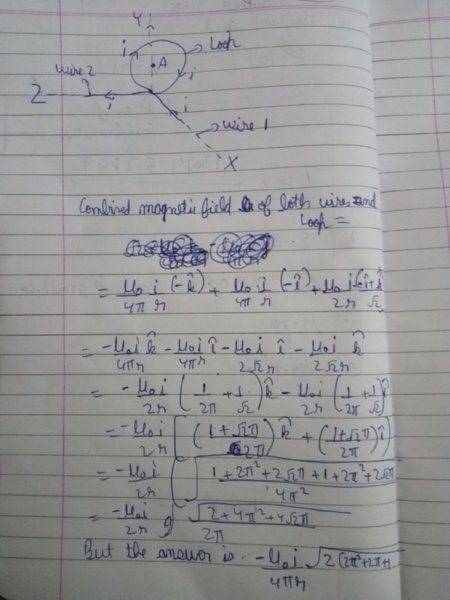 Y
i
Loop
A
i
wire 2
Z
i
i
wire 1
X
Combined magnetic field of both wires and
Loop =
= μ₀ i/4π r (-k̂) + μ₀ i/4π r (-î) + μ₀ i/2r (-î+k̂)/√2
= -μ₀i/4πr k̂ - μ₀i/4πr î - μ₀i/2√2r î - μ₀i/2√2r k̂
= -μ₀i/2r (1/2π + 1/√2) k̂ - μ₀i/2r (1/2π + 1/√2) î
= -μ₀i/2r [(1+√2π/2π) k̂ + (1+√2π/2π) î
= -μ₀i/2r [√1+2π²+2√2π+1+2π²+2√2π/4π²
= -μ₀i/2r √2+4π²+4√2π/2π
But the answer is -μ₀i/4πr √2(2π²+2π+1